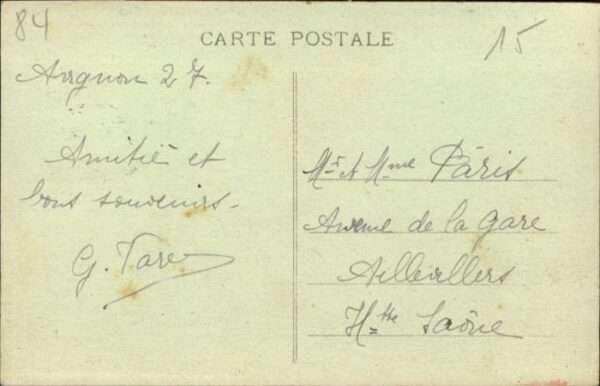 84
CARTE POSTALE
15
Avignon 27.
Amitié et
bons souvenirs.
G.
Mr & Mme Pâris
Avenue de la Gare
Aillevillers
Hte Saône